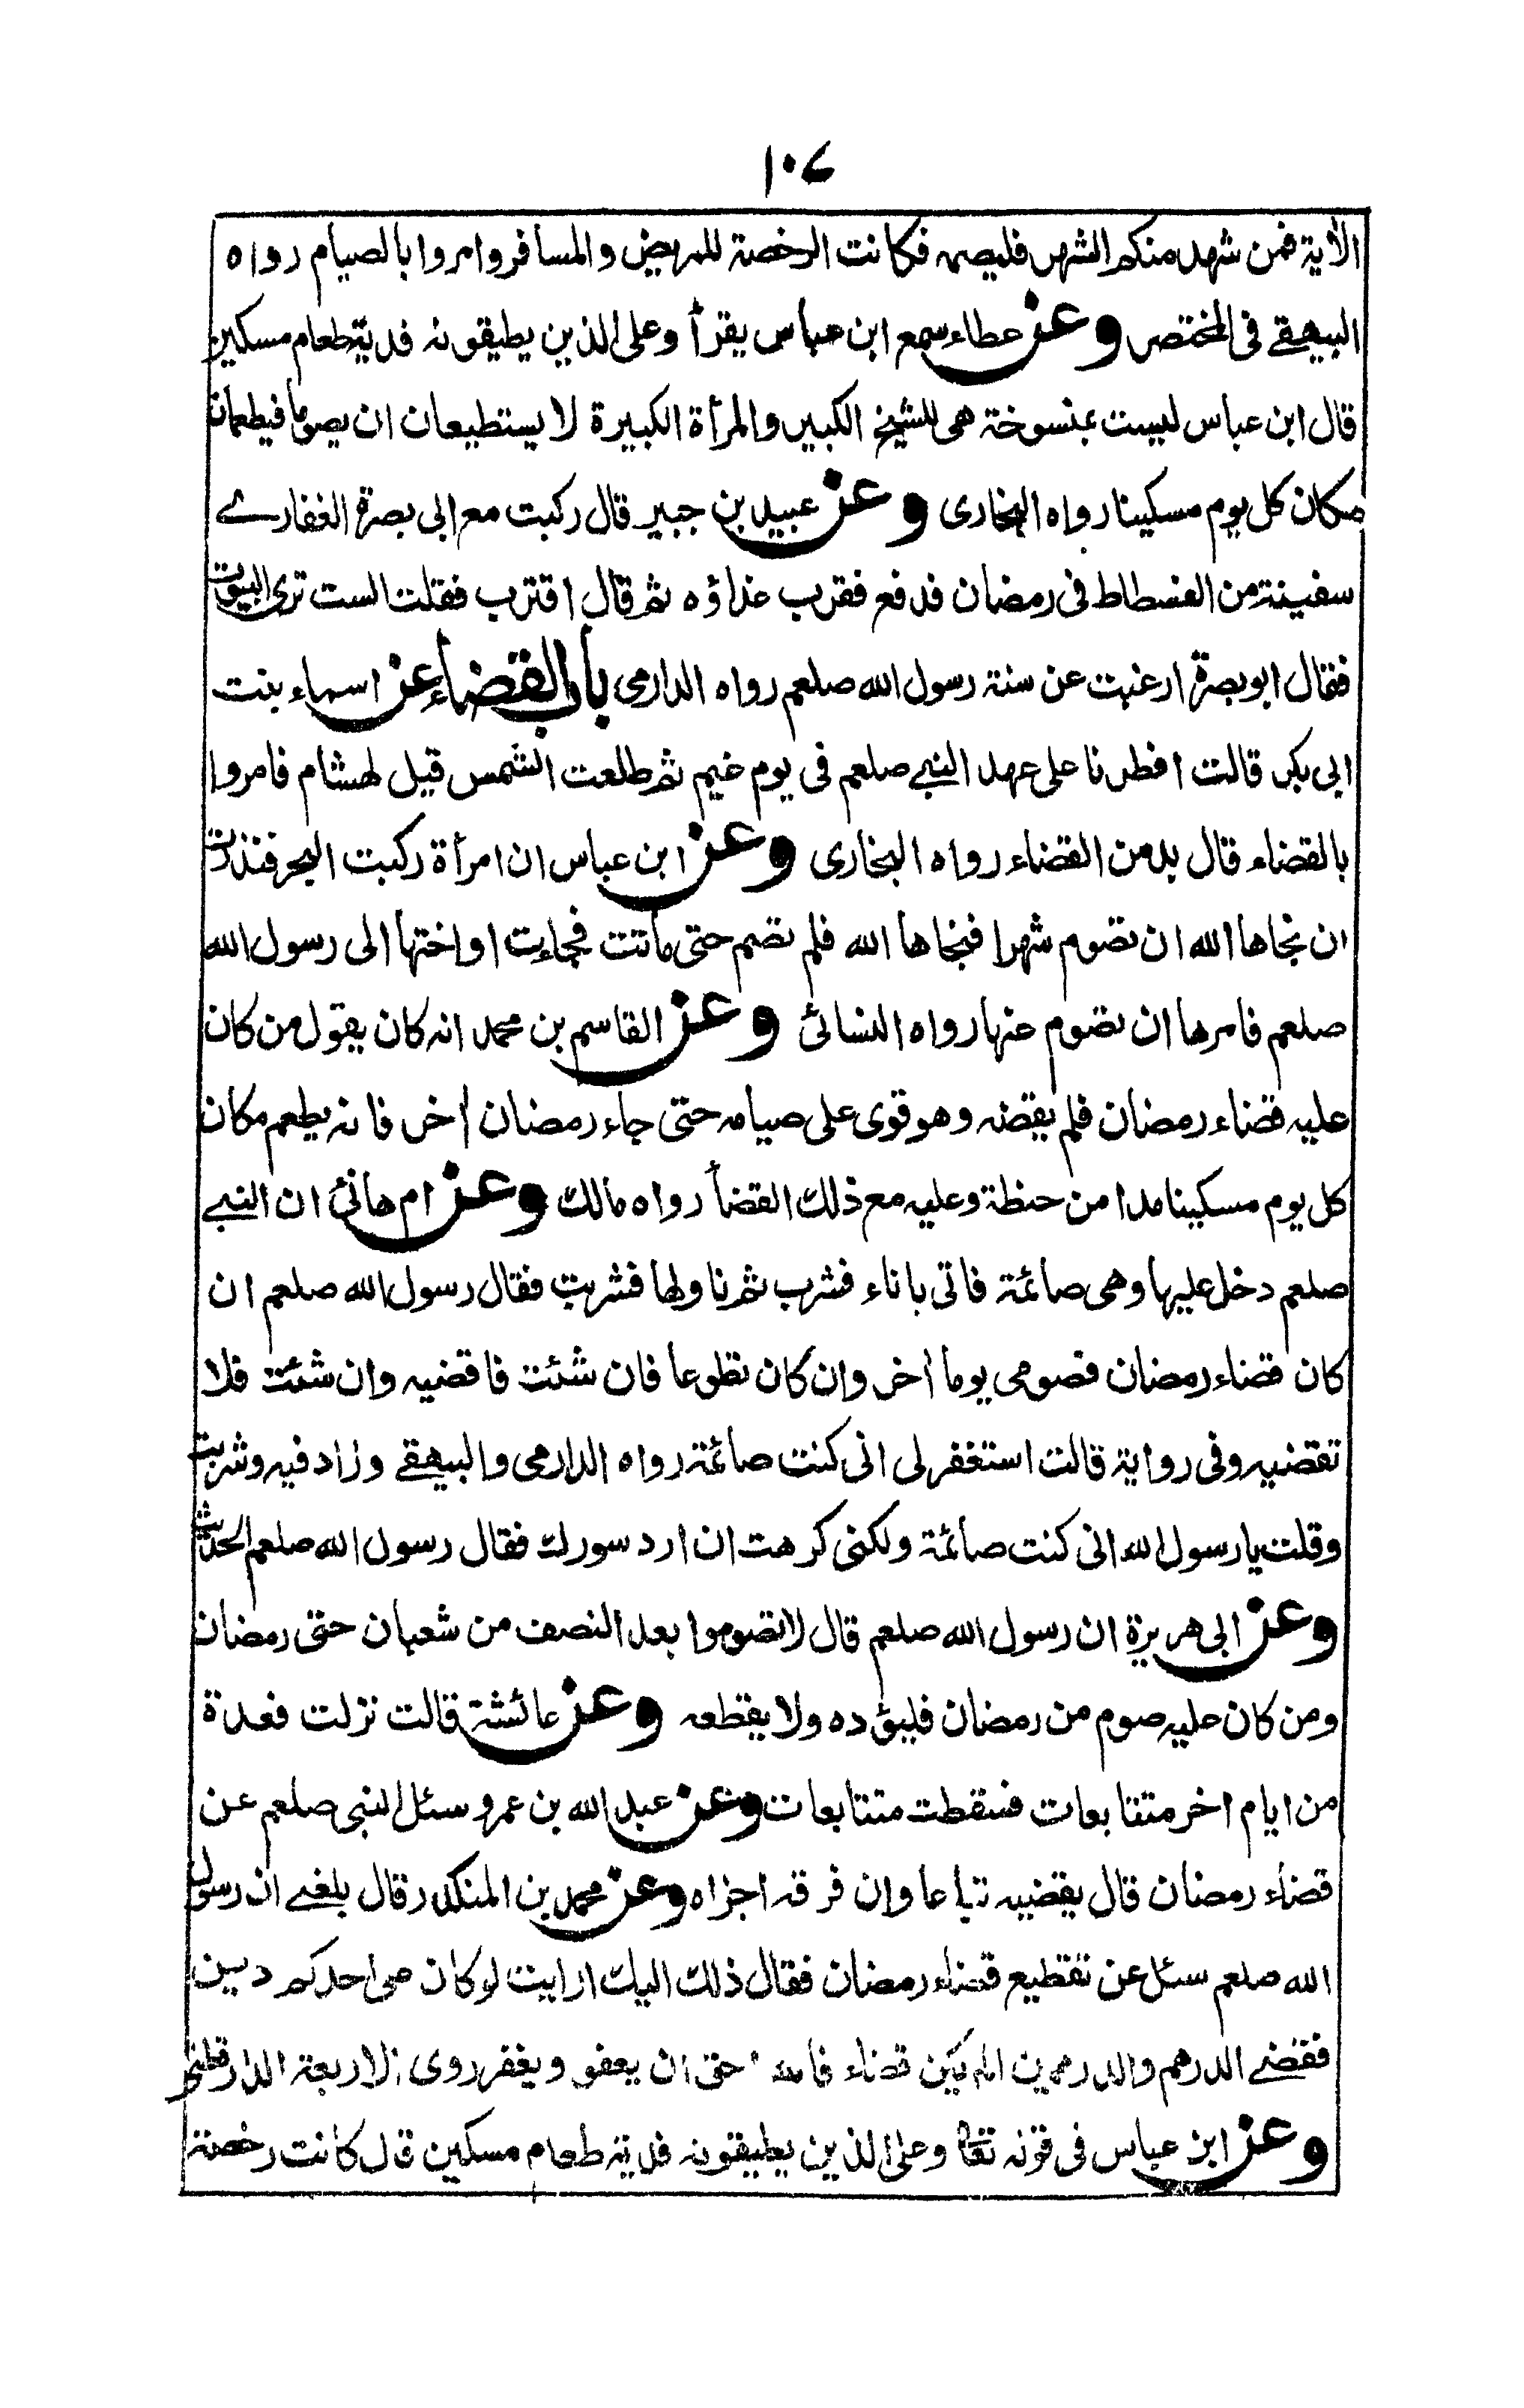 ١٠٧
الآية فمن شهد منكم الشهر فليصمه فكانت الرخصة للمريض والمسافر وامروا بالصيام رواه
البيهقي في المختصر وعن عطاء سمع ابن عباس يقرأ وعلى الذين يطيقونه فدية طعام مسكين
قال ابن عباس ليست بمنسوخة هي للشيخ الكبير والمرأة الكبيرة لا يستطيعان ان يصوما فيطعمان
مكان كل يوم مسكينا رواه البخاري وعن عبيد بن جبير قال ركبت مع ابي بصرة الغفاري
سفينة من الفسطاط في رمضان فدفع فقرب غداؤه ثم قال اقترب فقلت الست ترى البيوت
فقال ابو بصرة ارغبت عن سنة رسول الله صلعم رواه الدارمي باب القضاء عن اسماء بنت
ابي بكر قالت افطرنا على عهد النبي صلعم في يوم غيم ثم طلعت الشمس قيل لهشام فامروا
بالقضاء قال بد من القضاء رواه البخاري وعن ابن عباس ان امرأة ركبت البحر فنذرت
ان نجاها الله ان تصوم شهرا فنجاها الله فلم تصم حتى ماتت فجاءت او اختها الى رسول الله
صلعم فامرها ان تصوم عنها رواه النسائي وعن القاسم بن محمد انه كان يقول من كان
عليه قضاء رمضان فلم يقضه وهو قوى على صيامه حتى جاء رمضان اخر فانه يطعم مكان
كل يوم مسكينا مدا من حنطة وعليه مع ذلك القضأ رواه مالك وعن ام هانئ ان النبي
صلعم دخل عليها وهي صائمة فاتى باناء فشرب ثم ناولها فشربت فقال رسول الله صلعم ان
كان قضاء رمضان فصومى يوما أخر وان كان تطوعا فان شئت فاقضيه وان شئت فلا
تقضيه وفي رواية قالت استغفر لي اني كنت صائمة رواه الدارمي والبيهقي وزاد فيه وشربت
وقلت يا رسول الله اني كنت صائمة ولكنى كرهت ان ارد سورك فقال رسول الله صلعم الحديث
وعن ابي هريرة ان رسول الله صلعم قال لا تصوموا بعد النصف من شعبان حتى رمضان
ومن كان عليه صوم من رمضان فليؤده ولا يقطعه وعن عائشة قالت نزلت فعدة
من ايام اخر متتابعات فسقطت متتابعات وعن عبد الله بن عمرو سئل النبي صلعم عن
قضاء رمضان قال يقضيه تباعا وان فرقه اجزاه وعن محمد بن المنكدر قال بلغني ان رسول
الله صلعم سئل عن تقطيع قضاء رمضان فقال ذلك اليك ارايت لو كان على احدكم دين
فقضى الدرهم والدرهمين الم يكن قضاء فالله احق ان يعفو ويغفر روى الاربعة الدارقطني
وعن ابن عباس في قوله تعالى وعلى الذين يطيقونه فدية طعام مسكين قال كانت رخصة